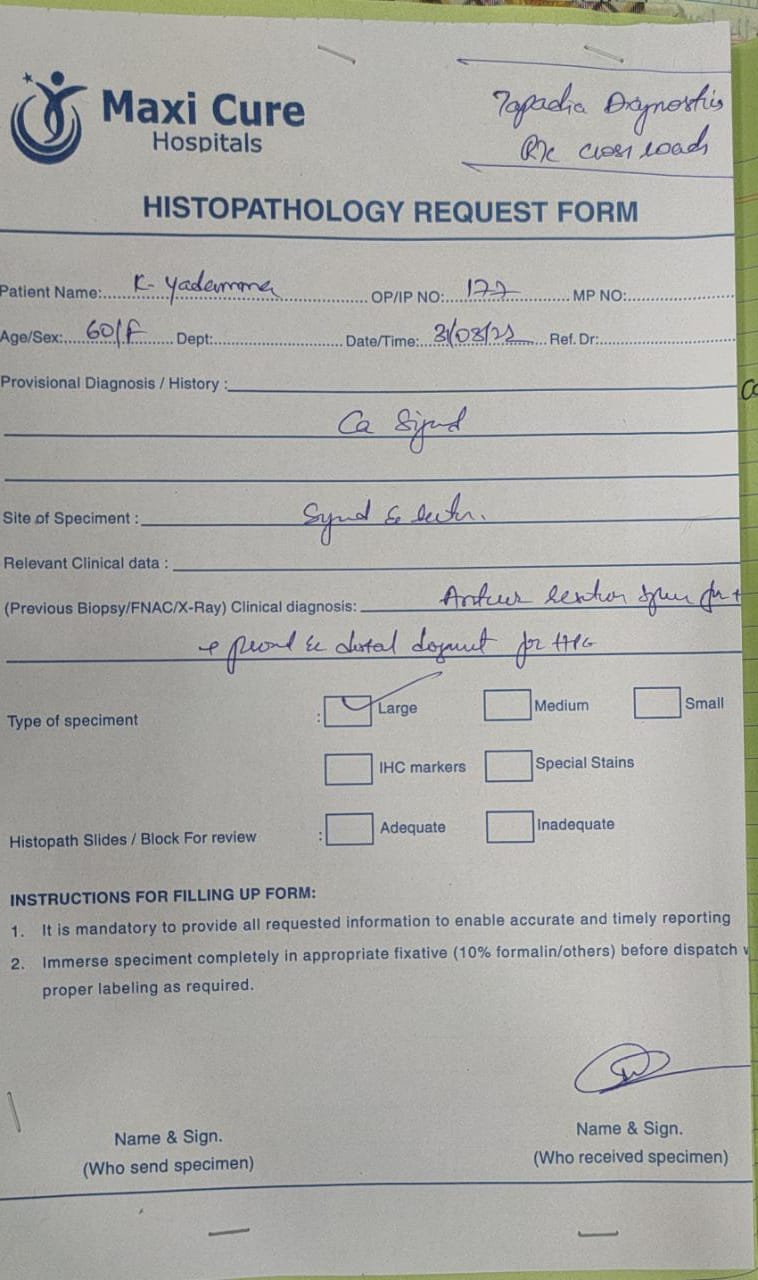 Maxi Cure
Hospitals
Tapadia Diagnostics
RTC cross roads
HISTOPATHOLOGY REQUEST FORM
Patient Name: K. Yadamma OP/IP NO: 177 MP NO:
Age/Sex: 60/F Dept: Date/Time: 31/08/22 Ref. Dr:
Provisional Diagnosis / History :
Ca Sigmoid
Site of Speciment : Sigmoid &
Relevant Clinical data :
(Previous Biopsy/FNAC/X-Ray) Clinical diagnosis:
& distal for HPE
Type of speciment : Large Medium Small
IHC markers Special Stains
Histopath Slides / Block For review : Adequate Inadequate
INSTRUCTIONS FOR FILLING UP FORM:
1. It is mandatory to provide all requested information to enable accurate and timely reporting
2. Immerse speciment completely in appropriate fixative (10% formalin/others) before dispatch
proper labeling as required.
Name & Sign. Name & Sign.
(Who send specimen) (Who received specimen)